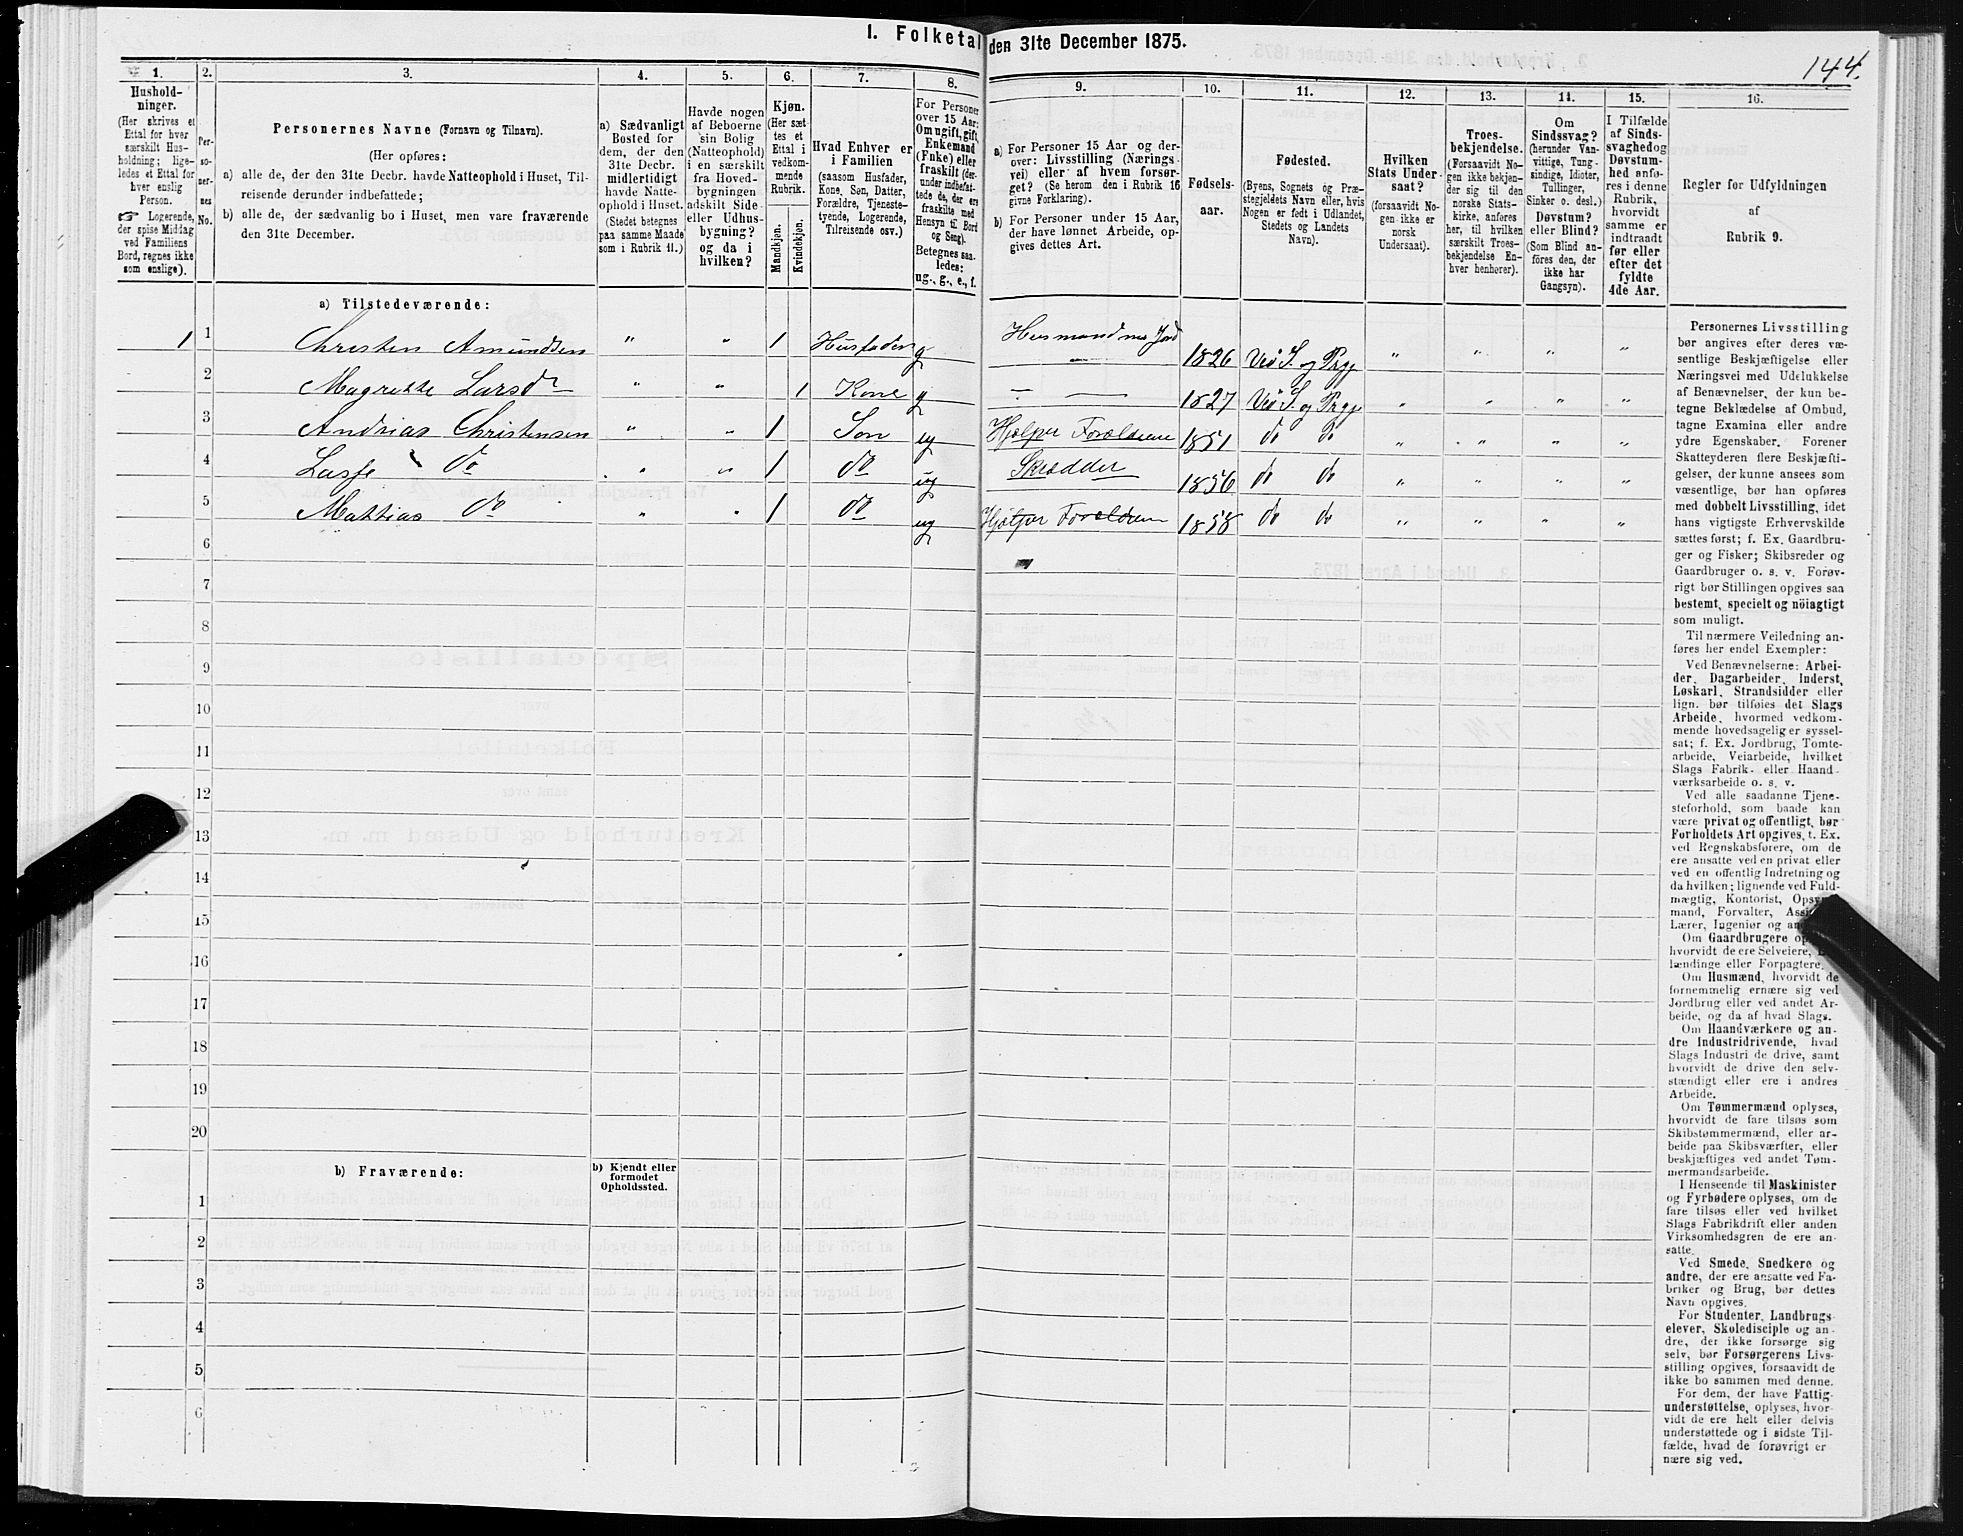 I. Folketal den 31te December 1875.
144.
1. 2. 3. 4. 5. 6. 7. 8. 9. 10. 11. 12. 13. 14. 15. 16.
Hushold-
ninger.
(Her skrives et
Ettal for hver
særskilt Hus-
holdning; lige-
ledes et Ettal for
hver enslig
Person.
☞ Logerende,
der spise Middag
ved Familiens
Bord, regnes ikke
som enslige).
Per-
so-
ner-
nes
No.
Personernes Navne (Fornavn og Tilnavn).
(Her opføres:
a) alle de, der den 31te Decbr. havde Natteophold i Huset, Til-
reisende derunder indbefattede;
b) alle de, der sædvanlig bo i Huset, men vare fraværende
den 31te December.
a) Sædvanligt
Bosted for
dem, der den
31te Decbr.
midlertidigt
havde Natte-
ophold i Huset.
(Stedet betegnes
paa samme Maade
som i Rubrik 11.)
Havde nogen
af Beboerne
sin Bolig
(Natteophold)
i en særskilt
fra Hoved-
bygningen
adskilt Side-
eller Udhus-
bygning?
og da i
hvilken?
Kjøn.
(Her sæt-
tes et
Ettal i
vedkom-
mende
Rubrik.
Mandkjøn.
Kvindekjøn.
Hvad Enhver er
i Familien
(saasom Husfader,
Kone, Søn, Datter,
Forældre, Tjeneste-
tyende, Logerende,
Tilreisende osv.)
For Personer
over 15 Aar:
Om ugift, gift,
Enkemand
(Enke) eller
fraskilt (der-
under indbefat-
tede de, der ere
fraskilte med
Hensyn til Bord
og Seng).
Betegnes saa-
ledes:
ug., g., e., f.
a) For Personer 15 Aar og der-
over: Livsstilling (Nærings-
vei) eller af hvem forsør-
get? (Se herom den i Rubrik 16
givne Forklaring).
b) For Personer under 15 Aar,
der have lønnet Arbeide, op-
gives dettes Art.
Fødsels-
aar.
Fødested.
(Byens, Sognets og Præ-
stegjeldets Navn eller, hvis
Nogen er født i Udlandet,
Stedets og Landets
Navn).
Hvilken
Stats Under-
saat?
(forsaavidt No-
gen ikke er
norsk
Undersaat).
Troes-
bekjendelse.
(Forsaavidt No-
gen ikke bekjen-
der sig til den
norske Stats-
kirke, anføres
her, til hvilken
særskilt Troes-
bekjendelse En-
hver henhører).
Om
Sindssvag?
(herunder Van-
vittige, Tung-
sindige, Idioter,
Tullinger,
Sinker o. desl.)
Døvstum?
eller Blind?
(Som Blind an-
føres den, der
ikke har
Gangsyn).
I Tilfælde
af Sinds-
svaghedog
Døvstum-
hed anfø-
res i denne
Rubrik,
hvorvidt
samme er
indtraadt
før eller
efter det
fyldte
4de Aar.
Regler for Udfyldningen
af
Rubrik 9.
a) Tilstedeværende:
1 1 Christen Amundsen " " 1 Husfader g Husmand med Jord 1826 Veø S. og Prgj " " " "
2 Magrethe Larsdr " " 1 Kone g — 1827 Veø S og Prgj " " " "
3 Andrias Christensen " " 1 Søn ug Hjelper Forældrene 1851 do do " " " "
4 Lasse do " " 1 do ug Skrædder 1856 do do " " " "
5 Mattias do " " 1 do ug Hjelper Forældrene 1858 do do " " " "
6
7
8
9
10
11
12
13
14
15
16
17
18
19
20
b) Fraværende:
b) Kjendt eller
formodet
Opholdssted.
1
2
3
4
5
6
Personernes Livsstilling
bør angives efter deres væ-
sentlige Beskjæftigelse eller
Næringsvei med Udelukkelse
af Benævnelser, der kun be-
tegne Beklædelse af Ombud,
tagne Examina eller andre
ydre Egenskaber. Forener
Skatteyderen flere Beskjæfti-
gelser, der kunne ansees som
væsentlige, bør han opføres
med dobbelt Livsstilling, idet
hans vigtigste Erhvervskilde
sættes først; f. Ex. Gaardbru-
ger og Fisker; Skibsreder og
Gaardbruger o. s. v. Forøv-
rigt bør Stillingen opgives saa
bestemt, specielt og nöiagtigt
som muligt.
Til nærmere Veiledning an-
føres her endel Exempler:
Ved Benævnelserne: Arbei-
der, Dagarbeider, Inderst,
Løskarl, Strandsidder eller
lign. bør tilføies det Slags
Arbeide, hvormed vedkom-
mende hovedsagelig er syssel-
sat; f. Ex. Jordbrug, Tomte-
arbeide, Veiarbeide, hvilket
Slags Fabrik- eller Haand-
værksarbeide o. s. v.
Ved alle saadanne Tjene-
steforhold, som baade kan
være privat og offentligt, bør
Forholdets Art opgives, t. Ex.
ved Regnskabsførere, om de
ere ansatte ved en privat eller
ved en offentlig Indretning og
da hvilken; lignende ved Fuld-
mægtig, Kontorist,
mand, Forvalter,
Lærer, Ingeniør og
Om Gaardbrugere
hvorvidt de ere Selveiere,
lændinge eller Forpagtere.
Om Husmænd, hvorvidt de
fornemmelig ernære sig ved
Jordbrug eller ved andet Ar-
beide, og da af hvad Slags.
Om Haandværkere og an-
dre Industridrivende, hvad
Slags Industri de drive, samt
hvorvidt de drive den selv-
stændigt eller ere i andres
Arbeide.
Om Tømmermænd oplyses,
hvorvidt de fare tilsøs som
Skibstømmermænd, eller ar-
beide paa Skibsværfter, eller
beskjæftiges ved andet Tøm-
mermandsarbeide.
I Henseende til Maskinister
og Fyrbødere oplyses, om de
fare tilsøs eller ved hvilket
Slags Fabrikdrift eller anden
Virksomhedsgren de ere an-
satte.
Ved Smede, Snedkere og
andre, der ere ansatte ved Fa-
briker og Brug, bør dettes
Navn opgives.
For Studenter, Landbrugs-
elever, Skoledisciple og an-
dre, der ikke forsørge sig
selv, bør Forsørgerens Livs-
stilling opgives, forsaavidt de
ikke bo sammen med denne.
For dem, der have Fattig-
understøttelse, oplyses, hvor-
vidt de ere helt eller delvis
understøttede og i sidste Til-
fælde, hvad de forøvrigt er
nære sig ved.